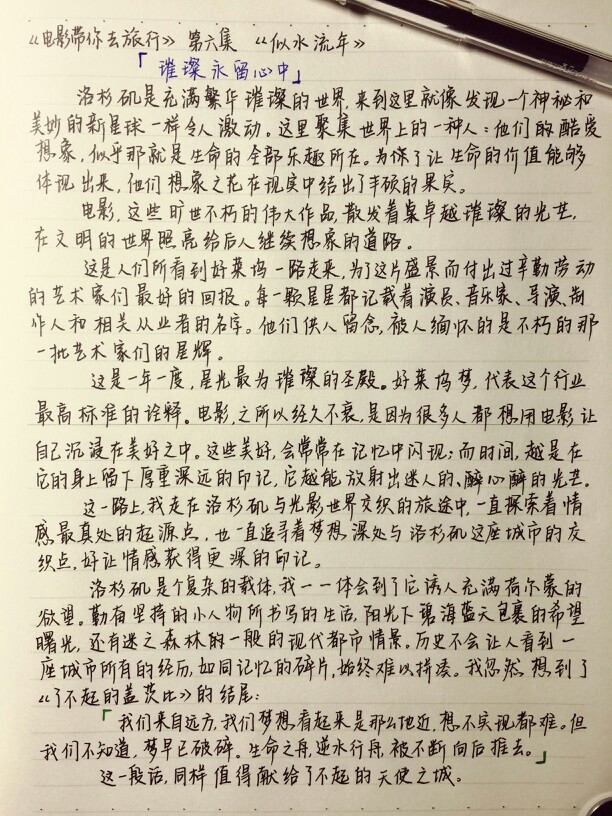 《电影带你去旅行》 第六集 《似水流年》
「璀璨永留心中」
洛杉矶是充满繁华璀璨的世界，来到这里就像发现一个神秘和
美妙的新星球一样令人激动。这里聚集世界上的一种人：他们的酷爱
想象，似乎那就是生命的全部乐趣所在。为了让生命的价值能够
体现出来，他们想象之花在现实中结出了丰硕的果实。
电影，这些旷世不朽的伟大作品，散发着卓越璀璨的光芒，
在文明的世界照亮给后人继续想象的道路。
这是人们所看到好莱坞一路走来，为了这片盛景而付出过辛勤劳动
的艺术家们最好的回报。每一颗星星都记载着演员、音乐家、导演、制
作人和相关从业者的名字。他们供人留念，被人缅怀的是不朽的那
一批艺术家们的星辉。
这是一年一度，星光最为璀璨的圣殿。好莱坞梦，代表这个行业
最高标准的诠释。电影，之所以经久不衰，是因为很多人都想用电影让
自己沉浸在美好之中。这些美好，会常常在记忆中闪现；而时间，越是在
它的身上留下厚重深远的印记，它越能放射出迷人的、醉心醉的光芒。
这一路上，我走在洛杉矶与光影世界交织的旅途中，一直探索着情
感最真处的起源点，也一直追寻着梦想深处与洛杉矶这座城市的交
织点，好让情感获得更深的印记。
洛杉矶是个复杂的载体，我一一体会到了它诱人充满荷尔蒙的
欲望。勤奋坚持的小人物所书写的生活，阳光下碧海蓝天包裹的希望
曙光，还有迷之森林的一般的现代都市情景。历史不会让人看到一
座城市所有的经历，如同记忆的碎片，始终难以拼凑。我忽然想到了
《了不起的盖茨比》的结尾：
「我们来自远方，我们梦想看起来是那么地近，想不实现都难。但
我们不知道，梦早已破碎。生命之舟，逆水行舟，被不断向后推去。」
这一段话，同样值得献给了不起的天使之城。